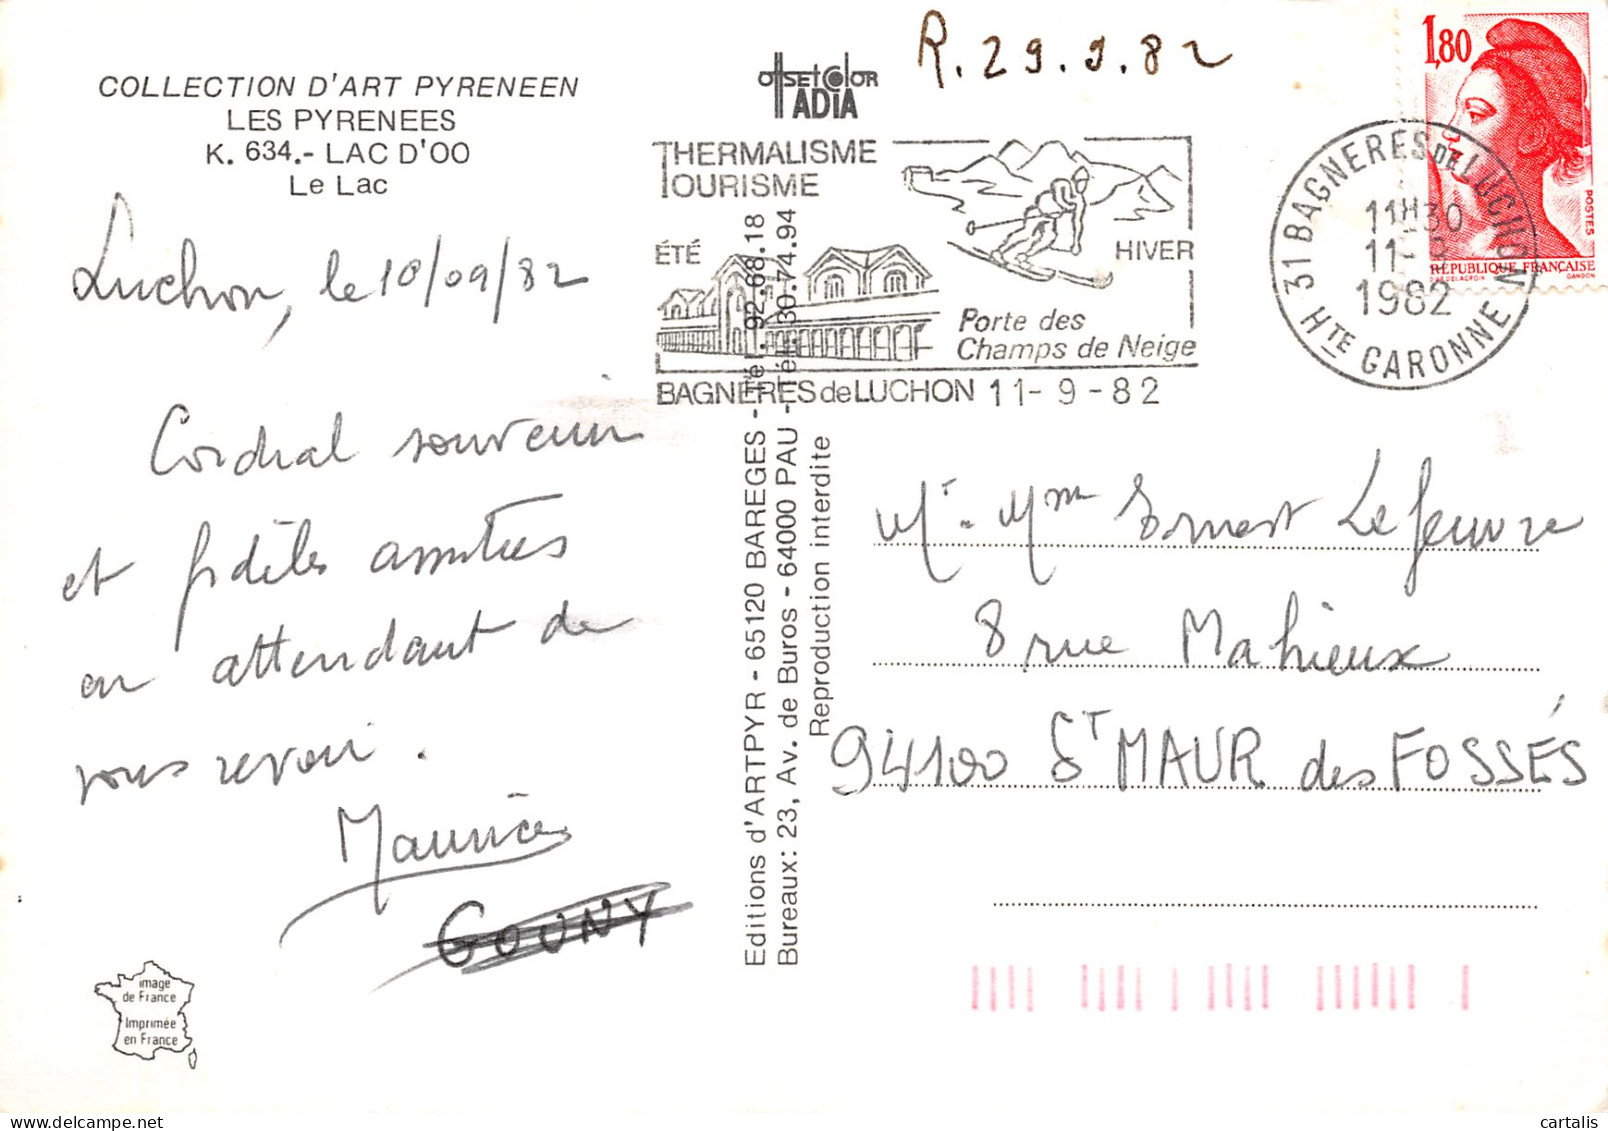 COLLECTION D'ART PYRENEEN
LES PYRENEES
K. 634.- LAC D'OO
Le Lac
Luchon, le 10/09/82
Cordial souvenir
et fidèles amitiés
en attendant de
vous revoir.
Maurice
GOUNY
image
de France
Imprimée
en France
OFFSET COLOR
TADIA
R. 29.9.82
THERMALISME
TOURISME
ÉTÉ
HIVER
Porte des
Champs de Neige
BAGNERES de LUCHON 11-9-82
Editions d'ARTPYR - 65120 BAREGES - Tél. 92.68.18
Bureaux: 23, Av. de Buros - 64000 PAU - Tél. 30.74.94
Reproduction interdite
1,80
POSTES
RÉPUBLIQUE FRANÇAISE
D'AP. DELACROIX GANDON
31 BAGNERES DE LUCHON
11H30
11-9
1982
HTE GARONNE
Mr. Mme Ernest Lefeuvre
8 rue Mahieux
94100 ST MAUR des FOSSÉS
cartalis